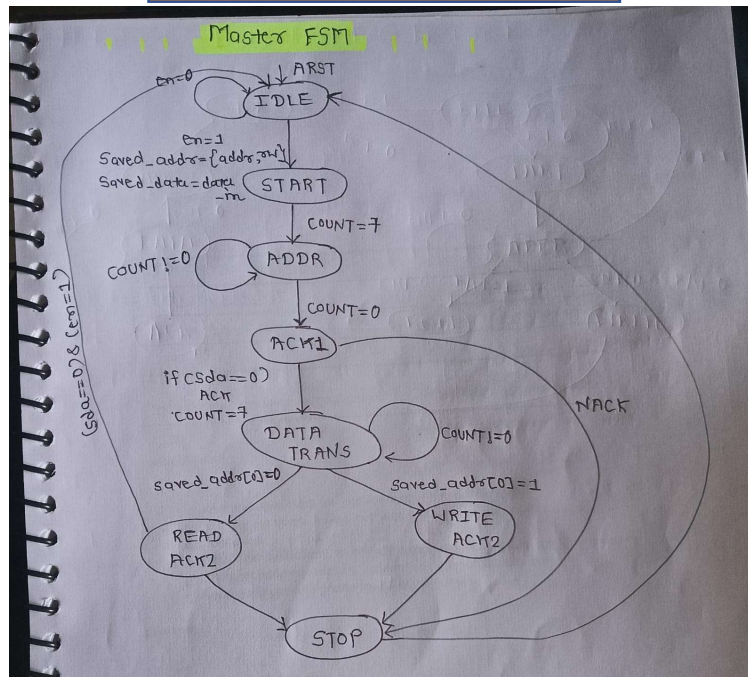 Master FSM
ARST
en=0
IDLE
en=1
Saved_addr={addr,rw}
Saved_data=data_m
START
COUNT=7
COUNT!=0
ADDR
COUNT=0
ACK1
if(sda==0)
ACK
COUNT=7
NACK
DATA
TRANS
COUNT!=0
(sda==0)&(en=1)
saved_addr[0]=0
saved_addr[0]=1
READ
ACK2
WRITE
ACK2
STOP